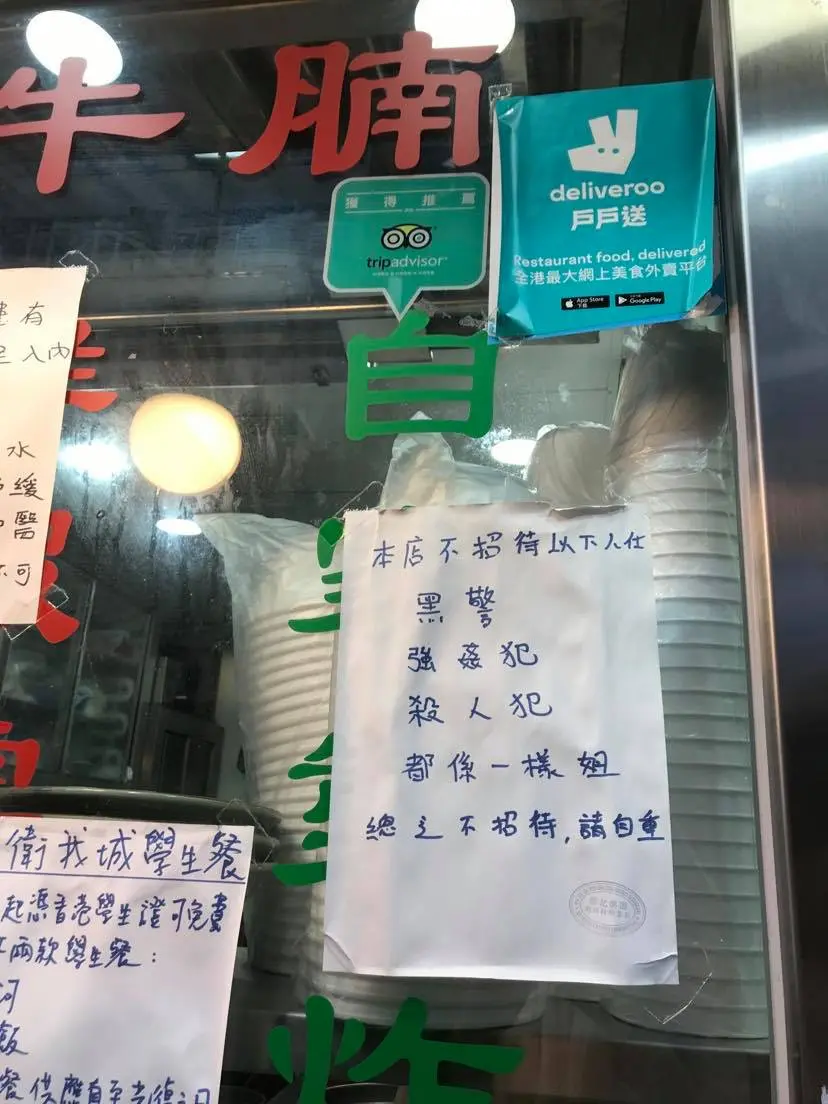 牛腩
獲得推薦
tripadvisor
deliveroo
戶戶送
Restaurant food, delivered
全港最大網上美食外賣平台
App Store
下載
Google Play
自
炸
有
入內
水
緩
醫
不可
本店不招待以下人仕
黑警
強姦犯
殺人犯
都係一樣姐
總之不招待,請自重
衛我城學生餐
起憑香港學生證可免費
兩款學生餐:
河
飯
餐供應自至光復之日